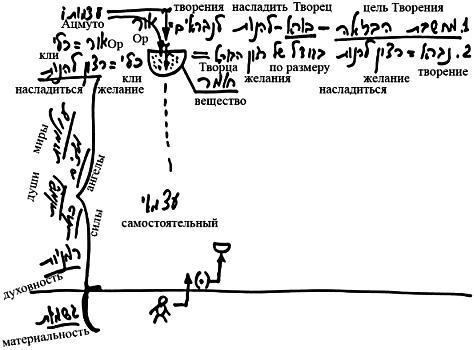 עצמותו
Ацмуто
אור
Ор
творения насладить Творец цель Творения
1. מחשבת הבריאה – בורא – להנות לנבראים
כלי = אור
кли Ор
2. נברא = רצון להנות = בגודל של רצון הבורא
Творца по размеру желание творение
желания насладиться
רצון להנות = כלי
насладиться желание кли
חומר
вещество
עולמות
миры
ангелы
души
силы
עצמאי
самостоятельный
רוחניות
духовность
(•)
גשמיות
материальность